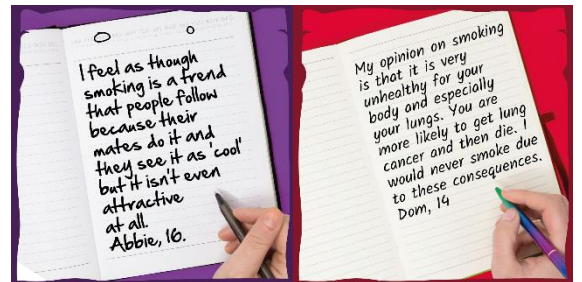 I feel as though
smoking is a trend
that people follow
because their
mates do it and
they see it as 'cool'
but it isn't even
attractive
at all.
Abbie, 16.
My opinion on smoking
is that it is very
unhealthy for your
body and especially
your lungs. You are
more likely to get lung
cancer and then die. I
would never smoke due
to these consequences.
Dom, 14